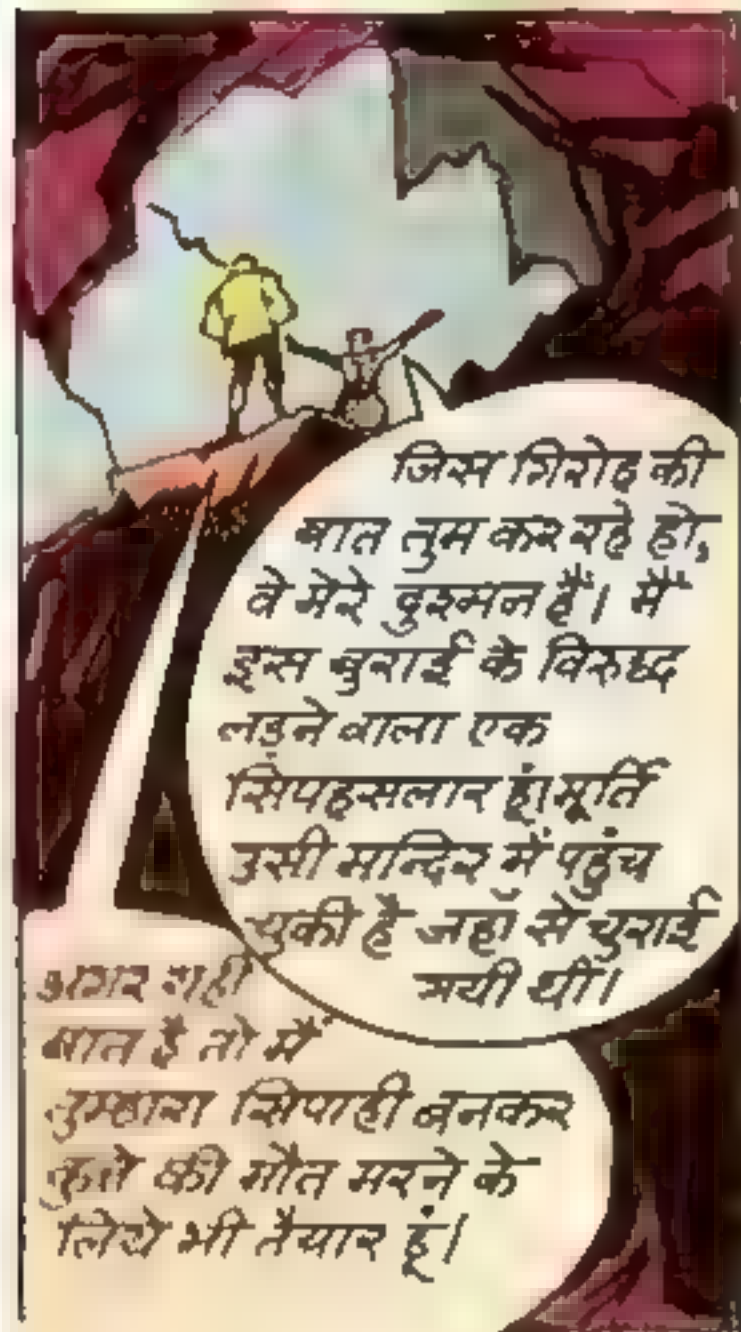 जिस गिरोह की
बात तुम कर रहे हो,
वे मेरे दुश्मन हैं। मैं
इस बुराई के विरुध्द
लड़ने वाला एक
सिपहसलार हूं। मूर्ति
उसी मन्दिर में पहुंच
चुकी है जहाँ से चुराई
गयी थी।
अगर यही
बात है तो मैं
तुम्हारा सिपाही बनकर
कुत्ते की मौत मरने के
लिये भी तैयार हूं।